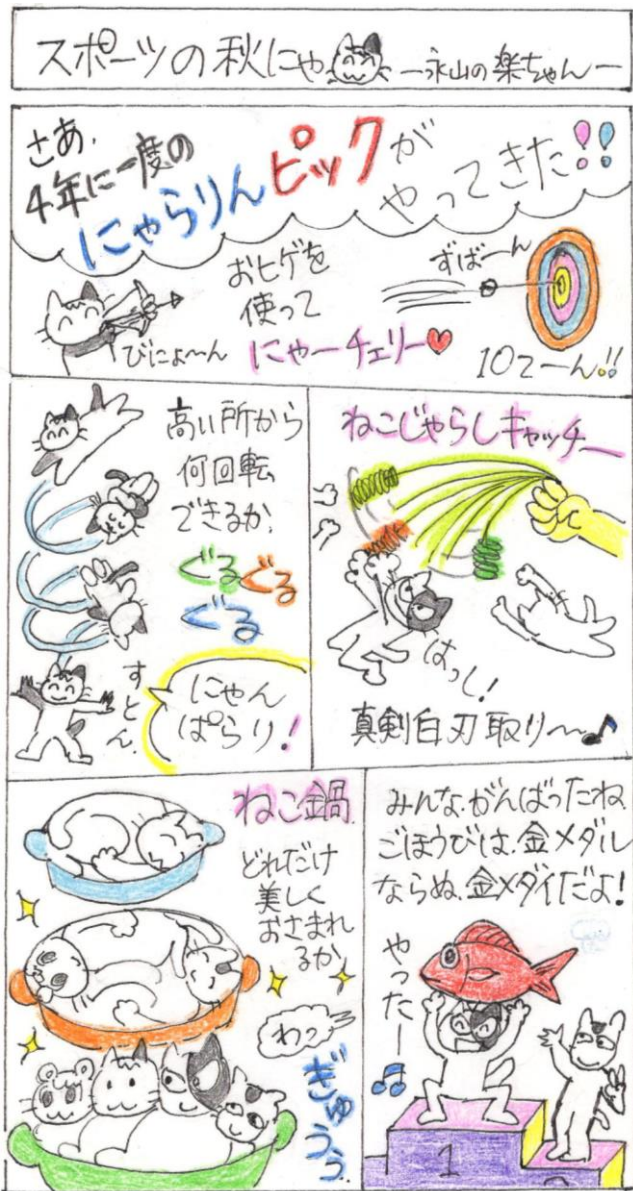 スポーツの秋にゃ
ー永山の楽ちゃんー
さあ、
4年に一度の
にゃらりんピックが
やってきた!!
おヒゲを
使って
にゃーチェリー♥
びにょ〜〜ん
ずばーん
10てーん!!
高い所から
何回転
できるか、
ぐるぐる
ぐる
すとん、
にゃん
ぱらり!
ねこじゃらしキャッチー
はっし!
真剣白刃取り〜〜♪
ねこ鍋
どれだけ
美しく
おさまれ
るか
わっ
ぎゅうぅ
みんながんばったね
ごほうびは、金メダル
ならぬ、金メダイだよ!
やったー♫
1